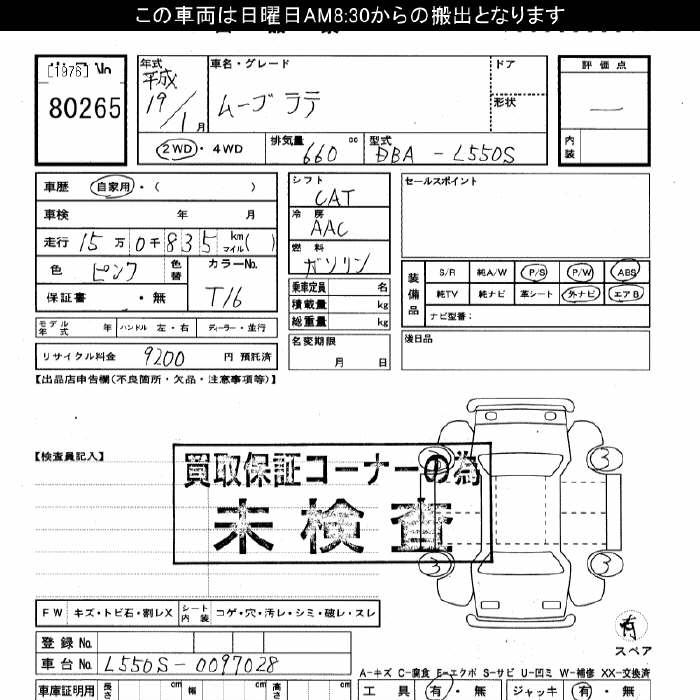 この車両は日曜日AM8:30からの搬出となります
[1976]
80265
年式
平成
19/1月
車名・グレード
ムーヴ ラテ
ドア
形状
評価点
内装
2WD・4WD
排気量
660 cc
型式
DBA-L550S
車歴 自家用・( )
車検 年 月
走行 15万0千835 km マイル( )
色 ピンク 色替
カラーNo.
T16
保証書 ・無
モデル年式 年 ハンドル 左・右 ディーラー・並行
リサイクル料金 9200 円 預託済
シフト
CAT
冷房
AAC
燃料
ガソリン
乗車定員 名
積載量 kg
総重量 kg
名変期限
月 日
セールスポイント
装備品
S/R 純A/W P/S P/W ABS
純TV 純ナビ 革シート 外ナビ エアB
ナビ型番:
後日品
【出品店申告欄(不良箇所・欠品・注意事項等)】
【検査員記入】
買取保証コーナーの為
未検査
3 3
3 3
有
スペア
FW キズ・トビ石・割レX シート内装 コゲ・穴・汚レ・シミ・破レ・スレ
登録No.
車台No. L550S-0097028
A-キズ C-腐食 E-エクボ S-サビ U-凹ミ W-補修 XX-交換済
車庫証明用 長さ cm 幅 cm 高さ cm
工具 有・無 ジャッキ 有・無